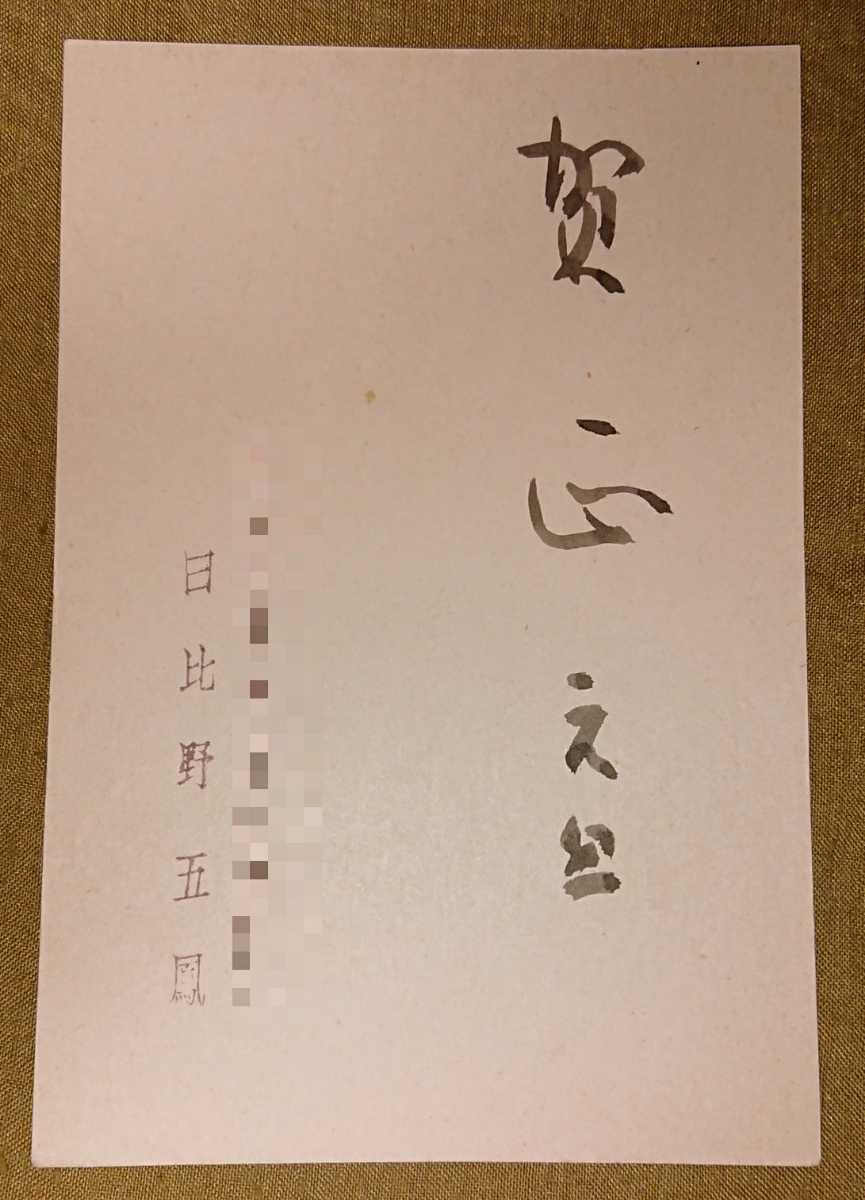 賀正 元旦
日比野五鳳